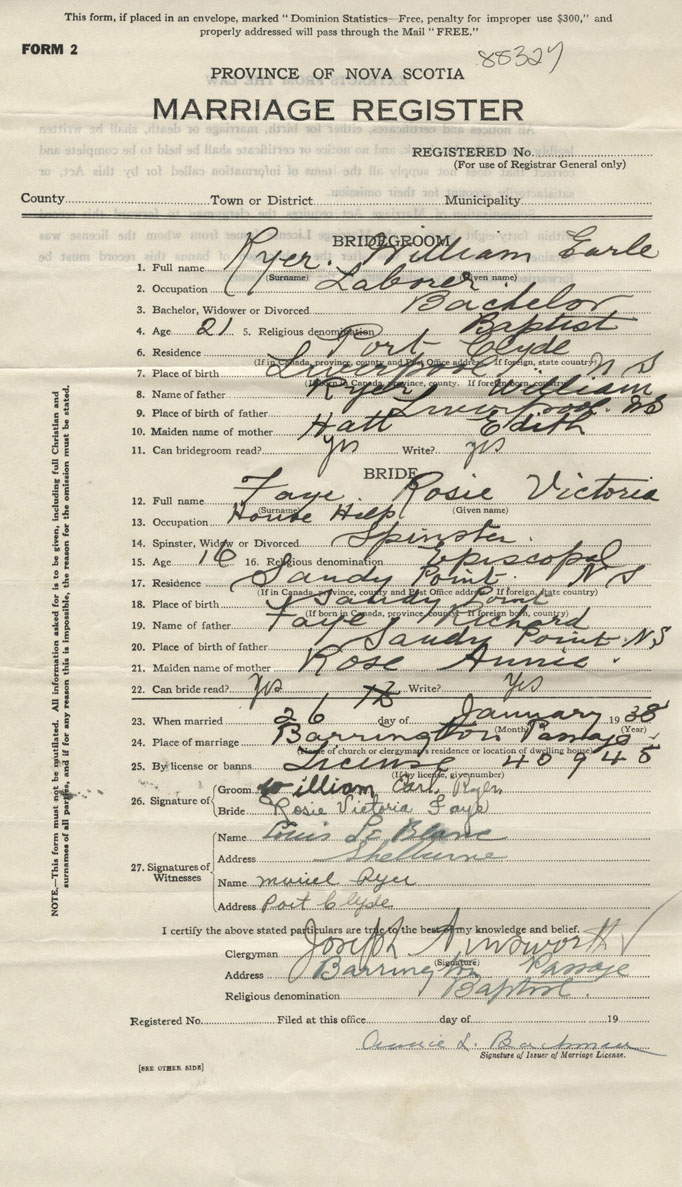 This form, if placed in an envelope, marked "Dominion Statistics—Free, penalty for improper use $300," and
properly addressed will pass through the Mail "FREE."
FORM 2
88327
PROVINCE OF NOVA SCOTIA
MARRIAGE REGISTER
REGISTERED No.
(For use of Registrar General only)
County Town or District Municipality
BRIDEGROOM
1. Full name Ryer. William Earle
(Surname) (Given name)
2. Occupation Laborer
3. Bachelor, Widower or Divorced Bachelor
4. Age 21 5. Religious denomination Baptist
6. Residence Port Clyde
(If in Canada, province, county and Post Office address. If foreign, state country)
7. Place of birth Liverpool N S
(If born in Canada, province, county. If foreign born, country)
8. Name of father Ryer William
9. Place of birth of father Liverpool. NS
10. Maiden name of mother Hatt Edith
11. Can bridegroom read? yes Write? yes
BRIDE
12. Full name Faye. Rosie Victoria
(Surname) (Given name)
13. Occupation House Help
14. Spinster, Widow or Divorced Spinster.
15. Age 16 16. Religious denomination Episcopal
17. Residence Sandy Point. N S
(If in Canada, province, county and Post Office address. If foreign, state country)
18. Place of birth Sandy Point
(If born in Canada, province, county. If foreign born, country)
19. Name of father Faye Richard
20. Place of birth of father Sandy Point. N.S
21. Maiden name of mother Rose Annie.
22. Can bride read? Yes Write? Yes
23. When married 26 day of January 1938
(Month) (Year)
24. Place of marriage Barrington Passage
(Name of church or clergyman's residence or location of dwelling house)
25. By license or banns License 40945
(If by license, give number)
26. Signature of Groom William Earl Ryer
Bride Rosie Victoria Faye
27. Signatures of Witnesses
Name Louis Le Blanc
Address Shelburne
Name muriel Ryer
Address Port Clyde
I certify the above stated particulars are true to the best of my knowledge and belief.
Clergyman Joseph Ainsworth
(Signature)
Address Barrington Passage
Religious denomination Baptist.
Registered No. Filed at this office day of 19
Annie L. Bachman
Signature of Issuer of Marriage License.
[SEE OTHER SIDE]
NOTE.—This form must not be mutilated. All information asked for is to be given, including full Christian and
surnames of all parties, and if for any reason this is impossible, the reason for the omission must be stated.